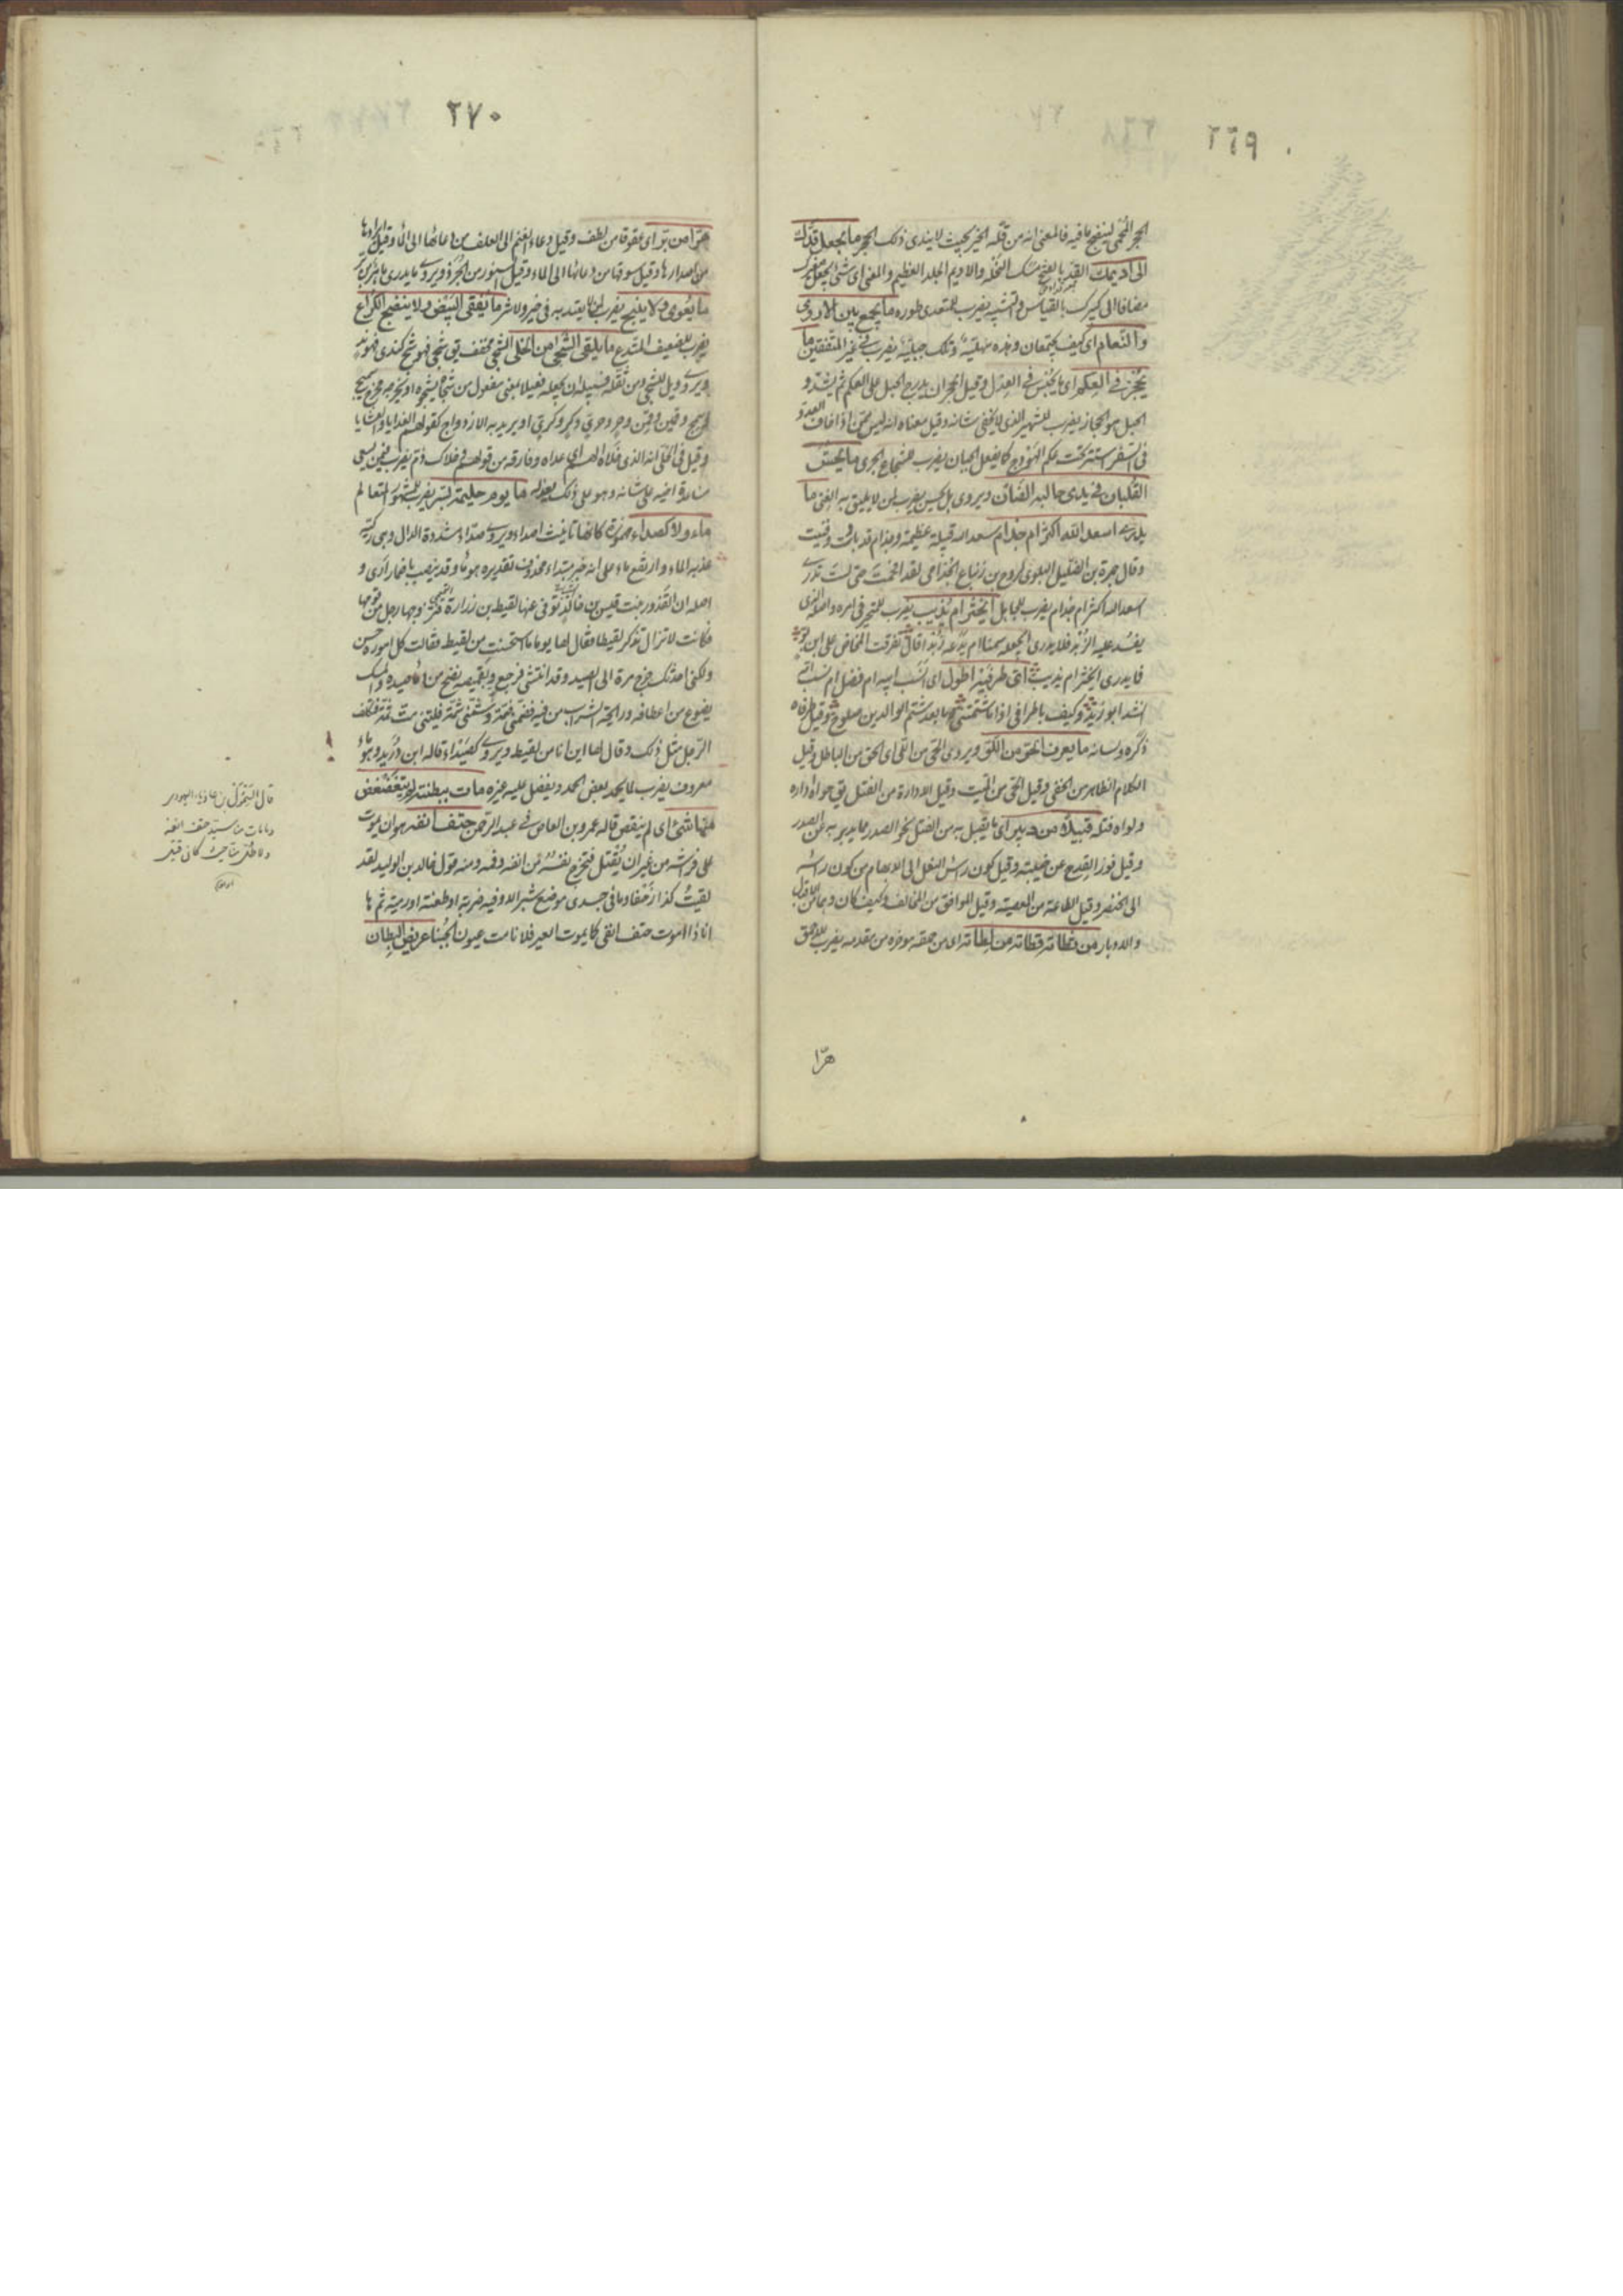 ٢٦٩
الحجر المحمى لينضج ما فيه فالمعنى انه من قلة الخير بحيث لا يندى ذلك الحجر ما يجعل قدك
الى اديمك القد بالفتح مسك السخلة والاديم الجلد العظيم والمعنى اى شئ يجعل صغيرك
مضافا الى كبيرك بالقياس والتشبيه يضرب للمتعدى طوره ما يجمع بين الاروى
والنعام اى كيف يجتمعان وهذه سهلية وتلك جبلية يضرب فى غير المتفقين ما
يحجز فى العكم اى ما يحبس فى العدل وقيل الحجز ان يدرج الحبل على العكم ثم يشد و
الحبل هو الحجاز يضرب للشهير الذى لا يخفى شانه وقيل معناه انه ليس ممن اذا خاف العدو
فى السفر استتر تحت عكم الهودج كما يفعل الجبان يضرب للشجاع الجرى ما يحسن
القلبان فى يدى حالبة الضأن ويروى بل يحسن يضرب لمن لا يليق به الغنى ما
يدرى اسعد الله اكثر ام جذام سعد الله قبيلة عظيمة وجذام قد بادت وفنيت
وقال حمزة بن الضليل البلوى لروح بن زنباع الجذامى لقد افحمت حتى لست تدرى
اسعد الله اكثر ام جذام يضرب للجاهل ما يدرى ايخثر ام يذيب يضرب للمتحير فى امره واصله الذى
يفسد عليه الزبد فلا يدرى ايجعله سمنا ام يدعه زبدا قال تفرقت المخاض على ابن بو
فما يدرى ايخثر ام يذيب اى طرفيه اطول اى انسب ابيه ام فضل ام نسب امه
انشد ابو زيد وكيف باطرافى اذا ما شتمتنى وما بعد شتم الوالدين صلوح وقيل طرفاه
ذكره ولسانه ما يعرف الحق من اللو ويروى الحى من اللى اى الحق من الباطل وقيل
الكلام الظاهر من الخفى وقيل الحى من الميت وقيل الادارة من الفتل يق حواه اداره
ولواه فتله قبيلا من دبير اى ما يقبل به من الفتل نحو الصدر مما يدبر به عن الصدر
وقيل فوز القدح عن خيبته وقيل كون راس النعل الى الابهام من كون راسه
الى الخنصر وقيل الطاعة من المعصية وقيل الموافق من المخالف وكيف كان فهما من الاقبال
والادبار من قطاته قطاته من لطاته اى من حمقه موخره من مقدمه يضرب للاحمق
هرا
٢٧٠
هرا من بر اى عقوقا من لطف وقيل دعاء الغنم الى العلف من دعائها الى الماء وقيل ايرادها
من اصدارها وقيل سوقها من دعائها الى الماء وقيل السنور من الجرذ ويروى ما يدرى ما هر من بر
ما يعوى ولا ينبح يضرب لمن لا يعتد به فى خير ولا شر ما يفقئ البيض ولا ينضج الكراع
يضرب للضعيف المتدع ما يلقى الشجى من الخلى الشجى مخفف يق شجى فهو شج كندى فهو ند
ويروى ويل للشجى ومن ثقله فسبيله ان يجعله فعيلا بمعنى مفعول من شجاه يشجوه او يخرجه مخرج سميج
لسمج وقمين وقمن وحر وحرى وكر وكرى او يريد به الازدواج كقولهم الغدايا والعشايا
وقيل فى الخلى انه الذى خلاه لهم اى عداه وفارقه من قولهم خلاك ذم يضرب فيمن يسعى
مساءة اخيه على شانه وهو على ذلك يعذله ما يوم حليمة بسر يضرب للمشهور المتعالم
ماء ولا كصداء حمزة كانها تانيث اصداء ويروى صداء مشددة الدال وهى ركية
عذبة الماء وارتفع ماء على انه خبر مبتداء محذوف تقديره هو ماء وقد ينصب باضمار ارى و
اصله ان القذور بنت قيس بن خالد توفى عنها لقيط بن زرارة فتزوجها رجل من قومها
فكانت لا تزال تذكر لقيطا فقال لها يوما ما استحسنت من لقيط فقالت كل اموره حسن
ولكنى احدثك خرج مرة الى الصيد وقد انتشى فرجع وبقميصه نضح من دماء صيده والمسك
يضوع من اعطافه ورائحة الشراب من فيه فضمنى ضمة وشمنى شمة فليتنى مت ثمة فتكلف
الرجل مثل ذلك وقال لها اين انا من لقيط ويروى كصيداء قاله ابن دريد وهو ماء
معروف يضرب لما يحمد بعض الحمد ويفضل عليه غيره مات ببطنته لم يتغضغض
منها شئ اى لم ينقص قاله عمرو بن العاص فى عبد الرحمن حتف انفه هو ان يموت
على فراشه من غير ان يقتل فتخرج نفسه من انفه وفمه ومنه قول خالد بن الوليد لقد
لقيت كذا زحفا وما فى جسدى موضع شبر الا وفيه ضربة او طعنة او رمية ثم ها
انا ذا اموت حتف انفى كما يموت العير فلا نامت عيون الجبناء عريض البطان
قال السموال بن عاديا اليهودى
وما مات منا سيد حتف انفه
ولا طل منا حيث كان قتيل